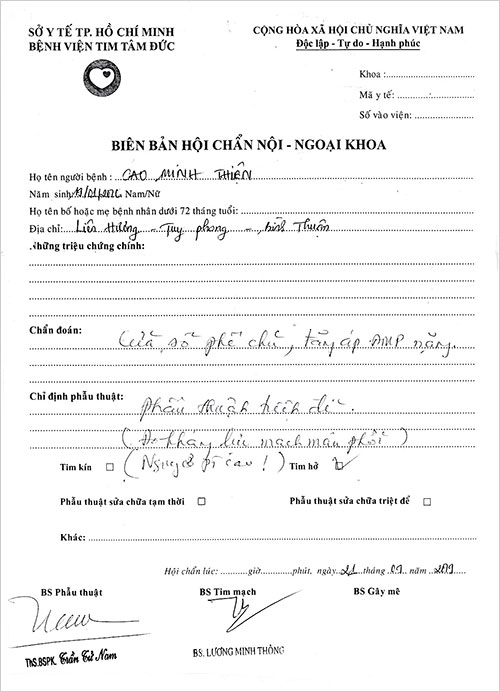 SỞ Y TẾ TP. HỒ CHÍ MINH
BỆNH VIỆN TIM TÂM ĐỨC
CỘNG HÒA XÃ HỘI CHỦ NGHĨA VIỆT NAM
Độc lập - Tự do - Hạnh phúc
Khoa :
Mã y tế:
Số vào viện:
BIÊN BẢN HỘI CHẨN NỘI - NGOẠI KHOA
Họ tên người bệnh : CAO MINH THIỆN
Năm sinh: Nam/Nữ
Họ tên bố hoặc mẹ bệnh nhân dưới 72 tháng tuổi:
Địa chỉ: Liên Hương - Tuy phong - Bình Thuận
Những triệu chứng chính:
Chẩn đoán: Cửa sổ phế chủ, tăng áp ĐMP nặng
Chỉ định phẫu thuật: Phẫu thuật triệt để.
mạch máu phổi)
Tim kín ☐ (Nguy cơ cao!) Tim hở ☑
Phẫu thuật sửa chữa tạm thời ☐ Phẫu thuật sửa chữa triệt để ☐
Khác:
Hội chẩn lúc: giờ phút. ngày 21 tháng năm
BS Phẫu thuật BS Tim mạch BS Gây mê
ThS.BSPK. Trần Tử Nam
BS. LƯƠNG MINH THÔNG